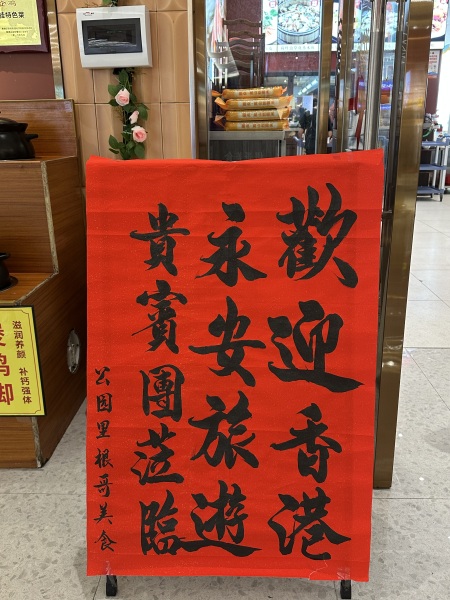 歡迎香港
永安旅遊
貴賓團蒞臨
公园里根哥美食
滋润养颜 补钙强体
特色菜